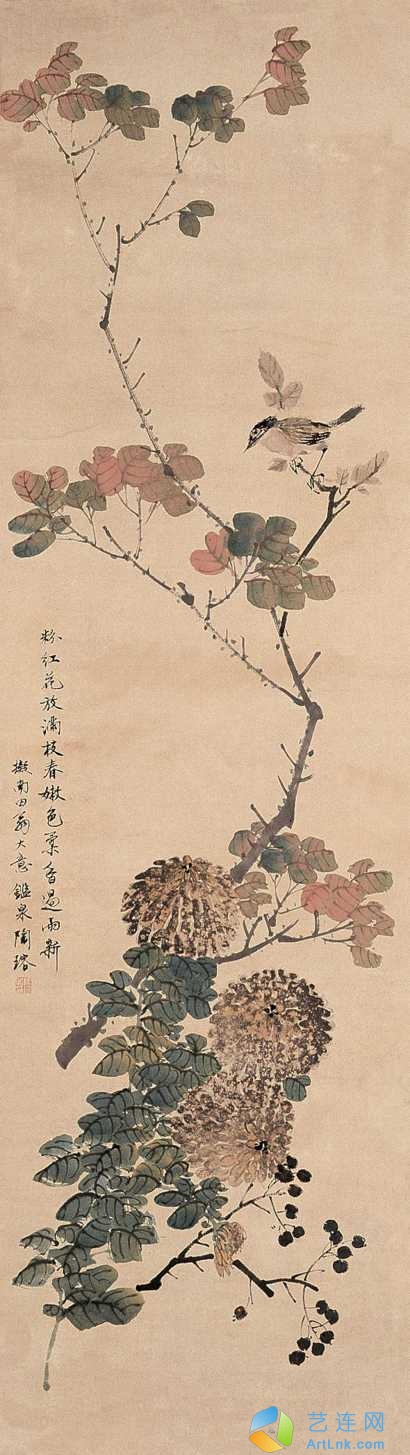 粉红花放满枝春嫩色浮香过雨新
拟南田翁大意 鉴泉陶瑢
艺连网
ArtLnk.com